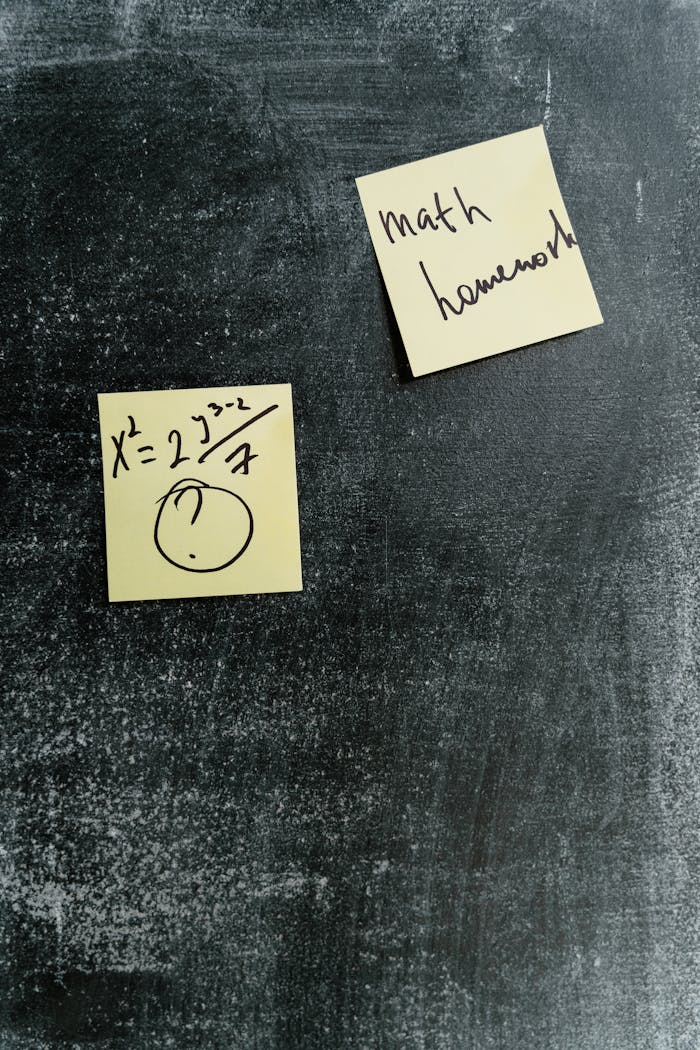 math
homework
x²=2 y³⁻²/7
?